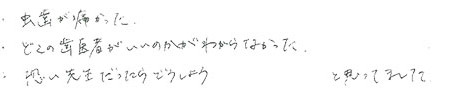 ・虫歯が痛かった.
・どこの歯医者がいいのかがわからなかった.
・恐い先生だったらどうしよう と思ってましてた